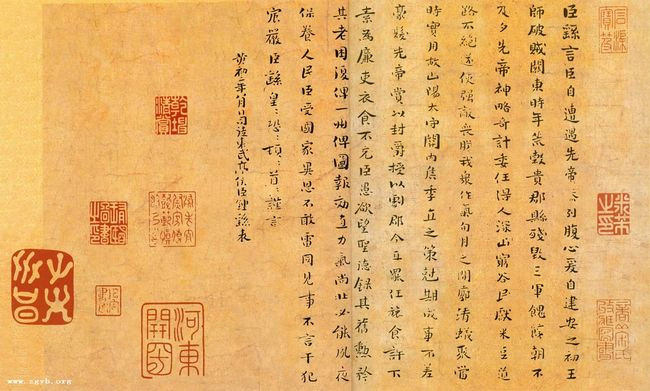 臣繇言臣自遭遇先帝忝列腹心爰自建安之初王
師破賊關東時年荒穀貴郡縣殘毀三軍餽饟朝不
及夕先帝神略奇計委任得人深山窮谷民獻米豆道
路不絕遂使強敵喪膽我眾作氣旬月之間廓清蟻聚當
時實用故山陽太守關內侯季直之策剋期成事不差
豪髮先帝賞以封爵授以劇郡今直罷任旅食許下
素為廉吏衣食不充臣愚欲望聖德錄其舊勳矜
其老困復俾一州俾圖報效直力氣尚壯必能夙夜
保養人民臣受國家異恩不敢雷同見事不言干犯
宸嚴臣繇皇:恐:頓:首:謹言
黃初二年八月日司徒東武亭侯臣鍾繇表
乾隆清賞
www.zgyb.org